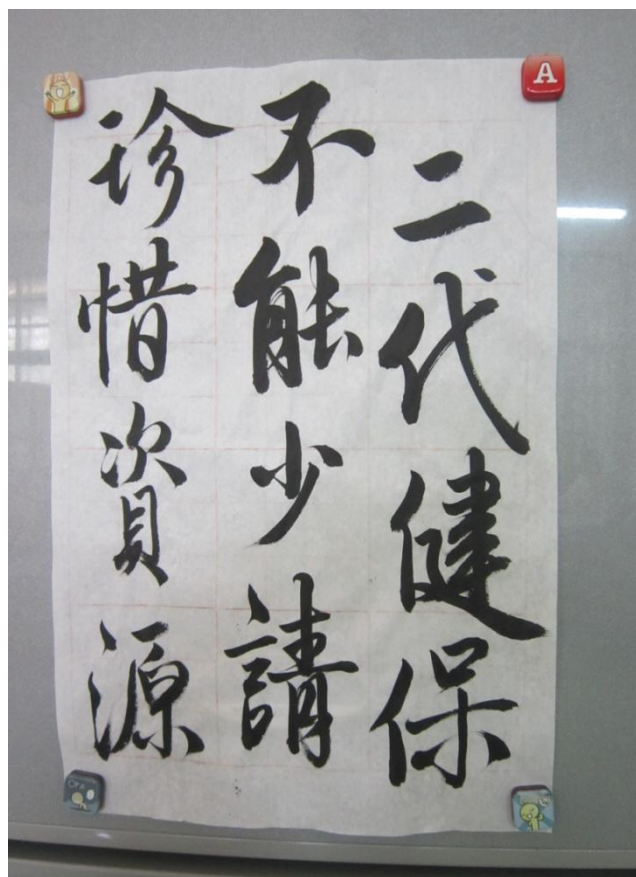 二代健保
不能少請
珍惜資源
A